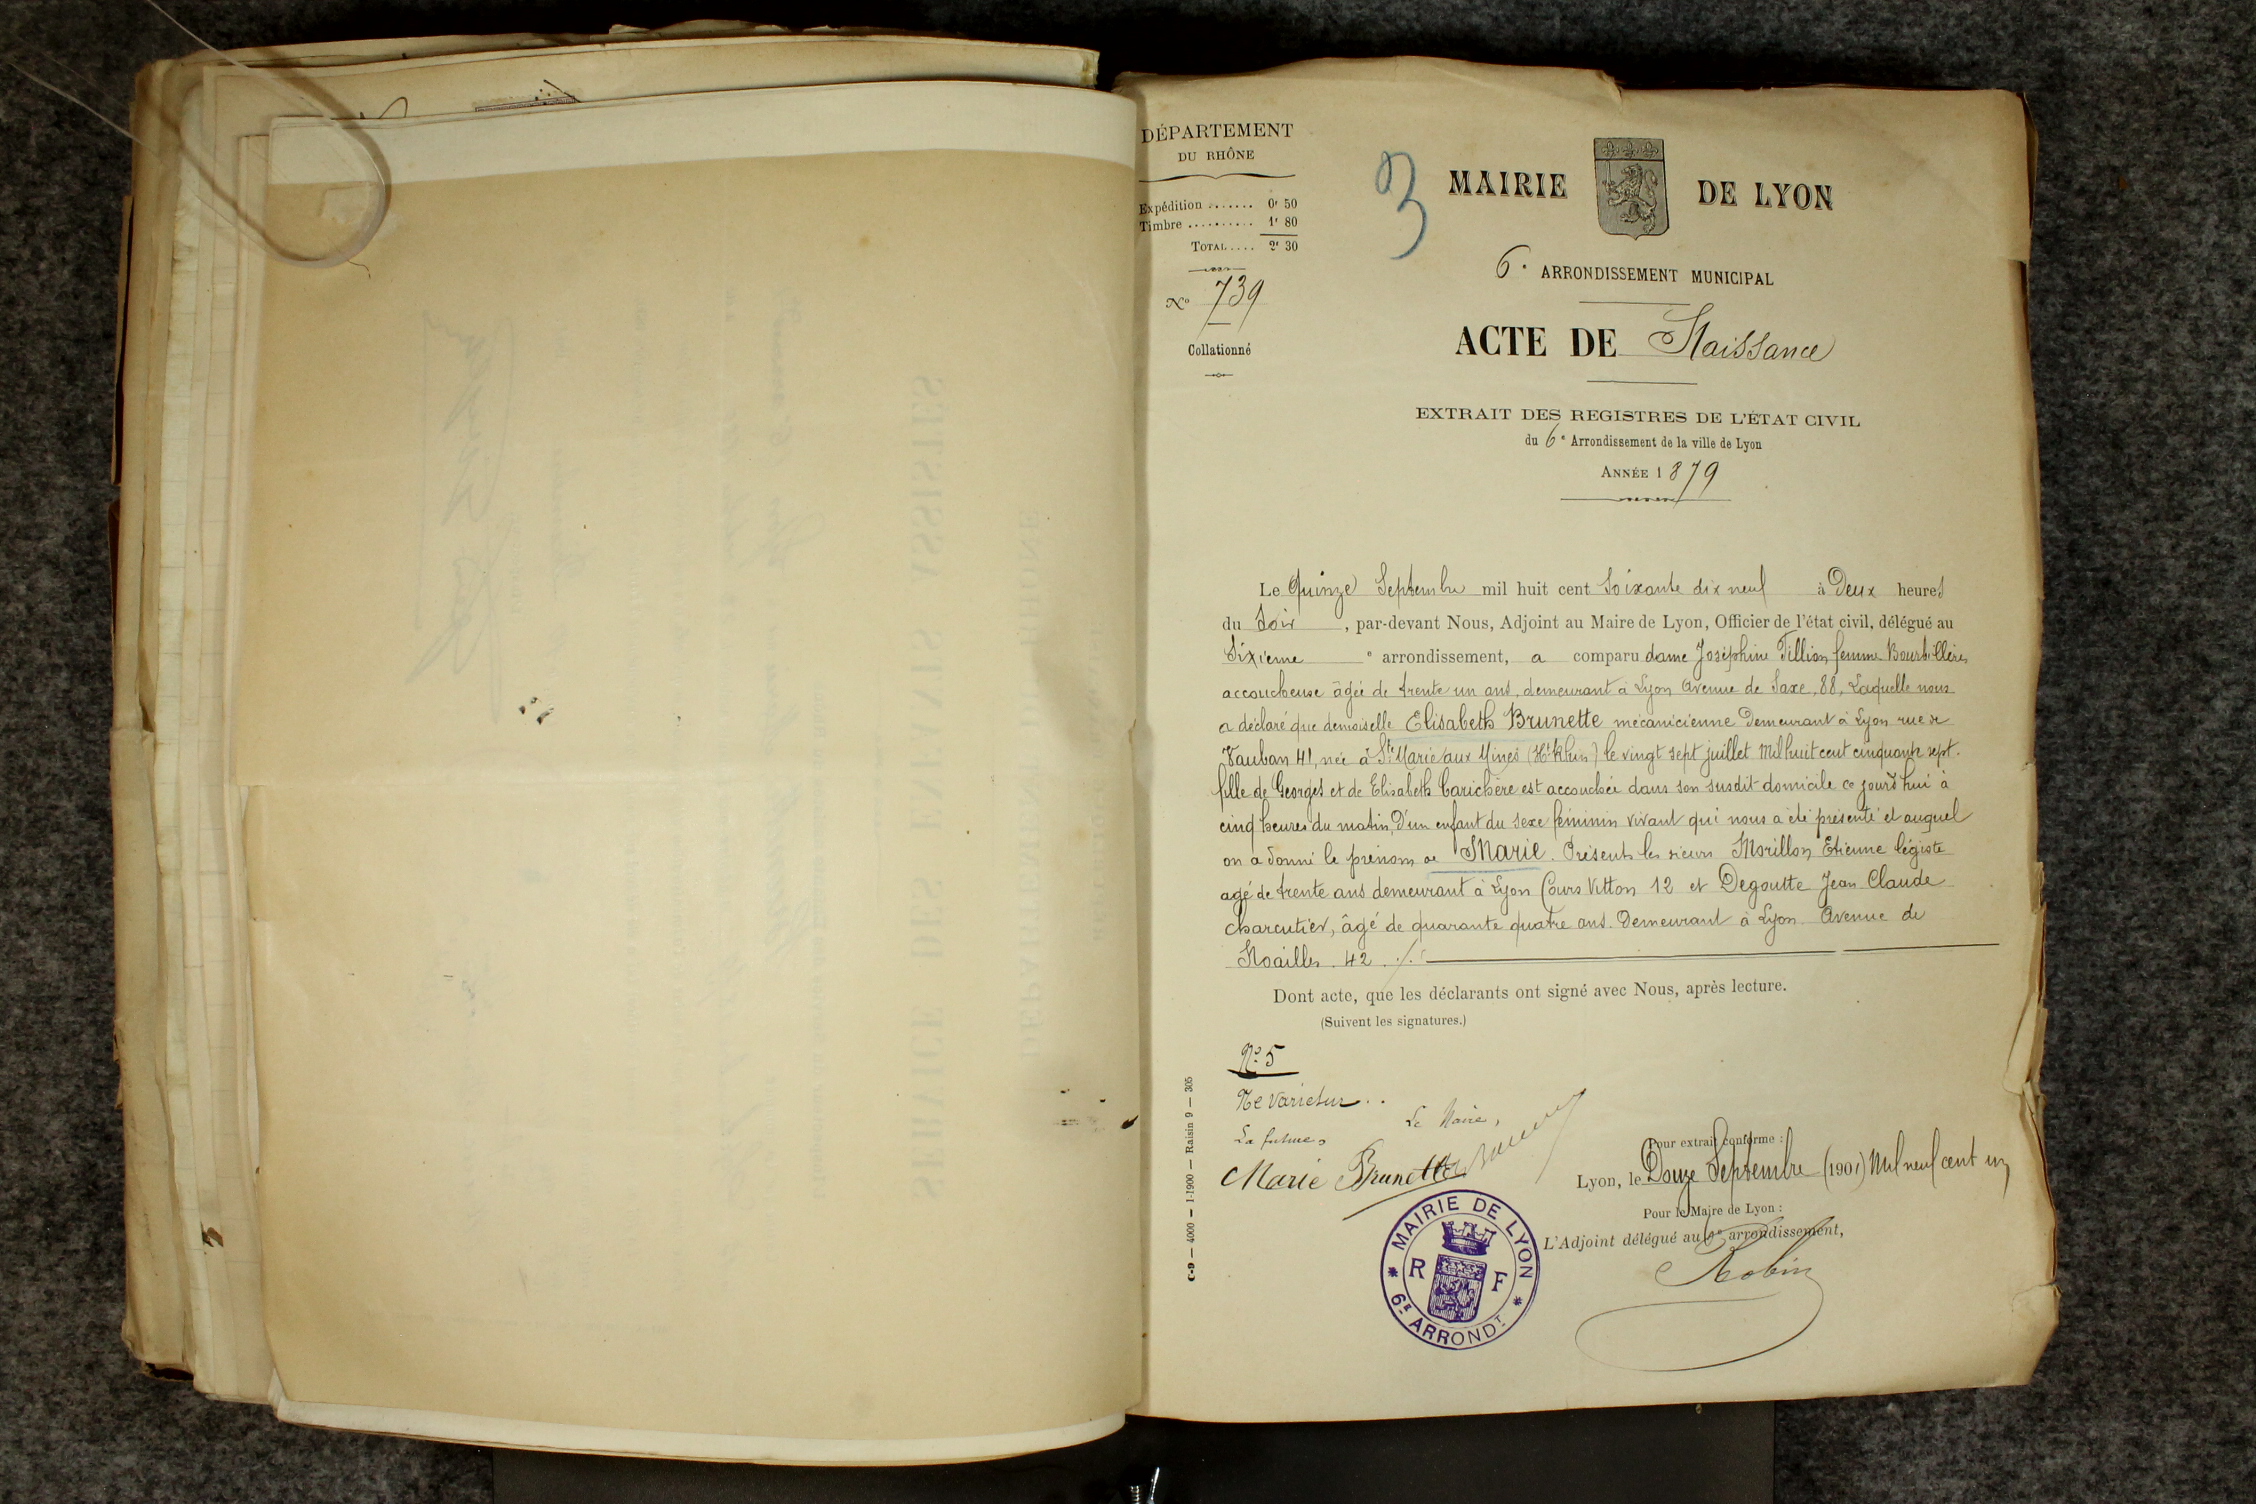 DÉPARTEMENT
DU RHÔNE
Expédition ....... 0f 50
Timbre .......... 1f 80
TOTAL .... 2f 30
No 739
Collationné
3
MAIRIE DE LYON
6e ARRONDISSEMENT MUNICIPAL
ACTE DE Naissance
EXTRAIT DES REGISTRES DE L'ÉTAT CIVIL
du 6e Arrondissement de la ville de Lyon
ANNÉE 1879
Le Quinze Septembre mil huit cent Soixante dix neuf à Deux heures
du Soir, par-devant Nous, Adjoint au Maire de Lyon, Officier de l'état civil, délégué au
Sixième e arrondissement, a comparu dame Joséphine Tillion femme
accoucheuse âgée de trente un ans, demeurant à Lyon Avenue de Saxe, 88, Laquelle nous
a déclaré que demoiselle Elisabeth Brunette mécanicienne Demeurant à Lyon rue de
Vauban 41, née à Ste Marie aux Mines (Ht Rhin) le vingt sept juillet Mil huit cent cinquante sept.
fille de Georges et de Elisabeth Carichère est accouchée dans son susdit domicile ce jourd'hui à
cinq heures du matin, D'un enfant du sexe féminin vivant qui nous a été présenté et auquel
on a donné le prénom de Marie. Présents les sieurs Morillon Etienne légiste
agé de trente ans demeurant à Lyon Cours Vitton 12 et Degoutte Jean Claude
charcutier, âgé de quarante quatre ans. Demeurant à Lyon Avenue de
Noailles. 42 ./.
Dont acte, que les déclarants ont signé avec Nous, après lecture.
(Suivent les signatures.)
No 5
Ne Varietur..
La future, Le Maire,
Marie Brunette
Pour extrait conforme :
Lyon, le Douze Septembre (1901) Mil neuf cent un
Pour le Maire de Lyon :
L'Adjoint délégué au 6e arrondissement,
Robin
MAIRIE DE LYON
R F
* 6E ARRONDT *
C-9 — 4000 — 1-1900 — Raisin 9 — 305
SERVICE DES ENFANTS ASSISTÉS
DÉPARTEMENT DU RHÔNE